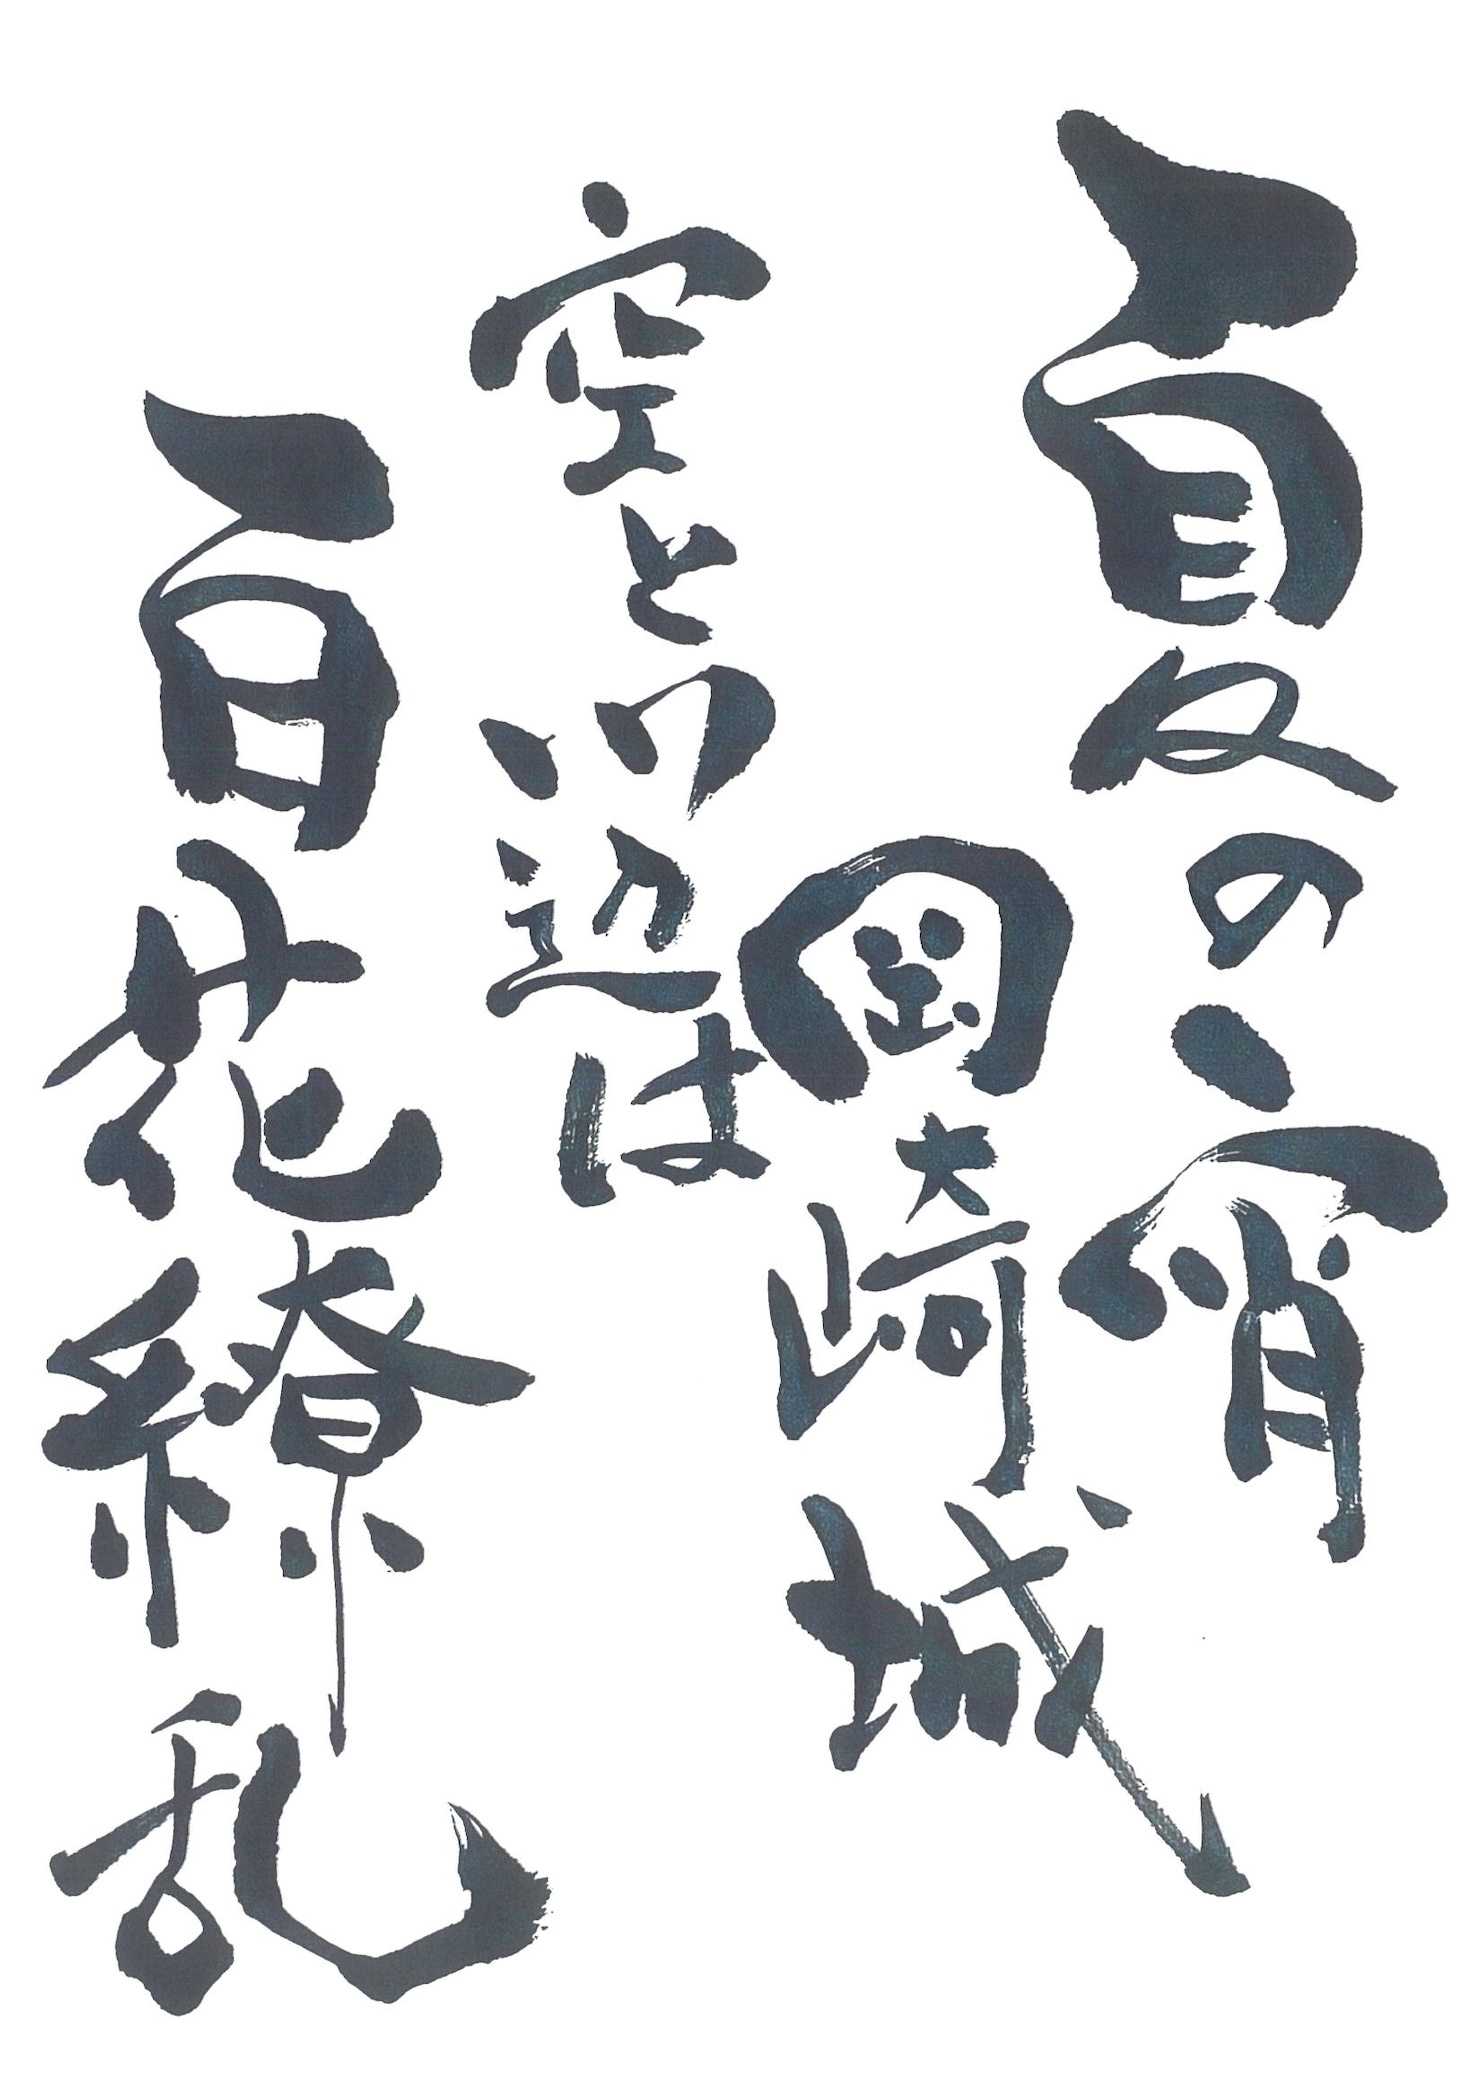 夏の宵
岡崎城
空と川辺は
百花繚乱